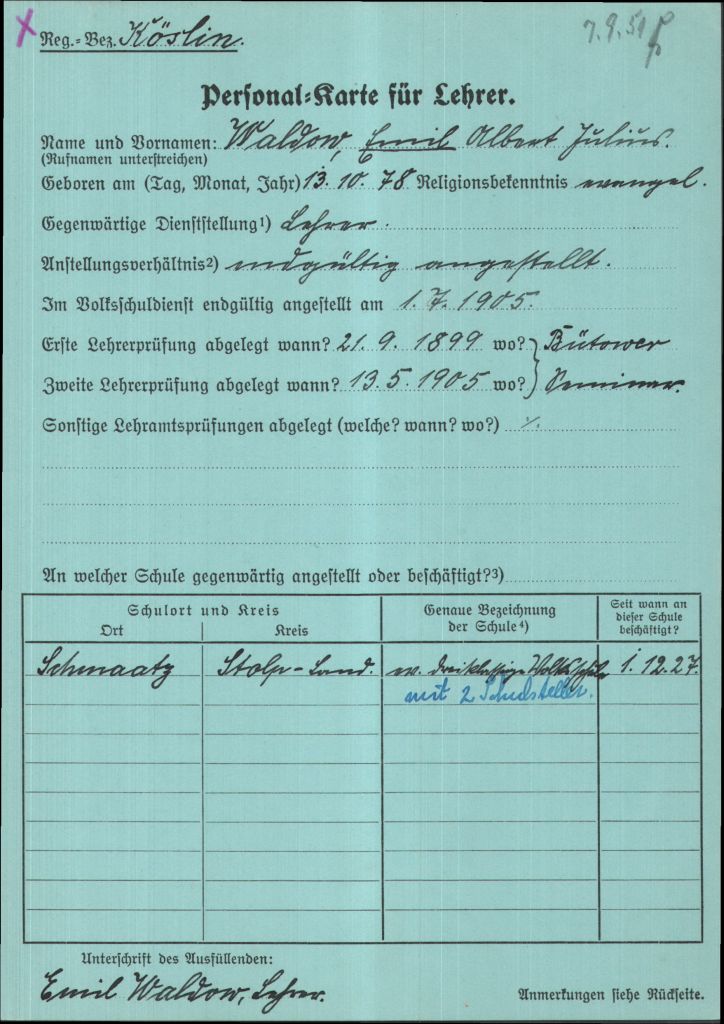 Reg.-Bez. Köslin.
7.9.51
Personal-Karte für Lehrer.
Name und Vornamen: Waldow, Emil Albert Julius.
(Rufnamen unterstreichen)
Geboren am (Tag, Monat, Jahr) 13.10.78 Religionsbekenntnis evangel.
Gegenwärtige Dienststellung1) Lehrer.
Anstellungsverhältnis2) endgültig angestellt.
Im Volksschuldienst endgültig angestellt am 1.7.1905.
Erste Lehrerprüfung abgelegt wann? 21.9.1899 wo? Bütower
Zweite Lehrerprüfung abgelegt wann? 13.5.1905 wo? Seminar.
Sonstige Lehramtsprüfungen abgelegt (welche? wann? wo?) ./.
An welcher Schule gegenwärtig angestellt oder beschäftigt?3)
Schulort und Kreis
Ort
Kreis
Genaue Bezeichnung
der Schule4)
Seit wann an
dieser Schule
beschäftigt?
Schmaatz Stolp-Land. ev. dreiklassige Volksschule 1.12.27.
mit 2 Schulstellen.
Unterschrift des Ausfüllenden:
Emil Waldow, Lehrer.
Anmerkungen siehe Rückseite.